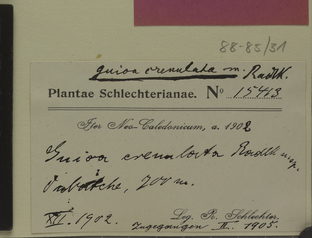 88-85/31
Guioa crenulata m. Radlk.
Plantae Schlechterianae. No 15443
Iter Neo-Caledonicum, a. 1902
Guioa crenulata Radlk n. sp.
700 m.
XII. 1902. Leg. R. Schlechter.
Zugegangen II. 1905.